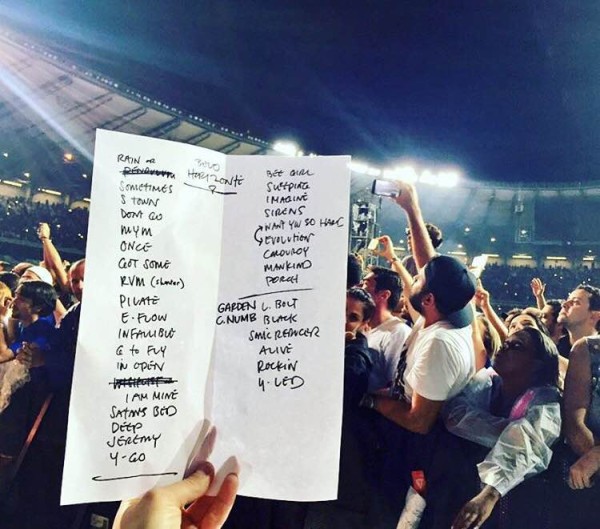 RAIN OR
PENDULUM
SOMETIMES
S TOWN
DONT GO
MYM
ONCE
GOT SOME
RVM (slower)
PILATE
E-FLOW
INFALLIBLE
G to FLY
IN OPEN
I AM MINE
SATANS BED
DEEP
JEREMY
Y-GO
BELO
HORIZONTE
BEE GIRL
SLEEPING
IMAGINE
SIRENS
WANT YOU SO HARD
EVOLUTION
CORDUROY
MANKIND
PORCH
GARDEN L. BOLT
C.NUMB BLACK
SONIC REDUCER
ALIVE
ROCKIN
Y-LED